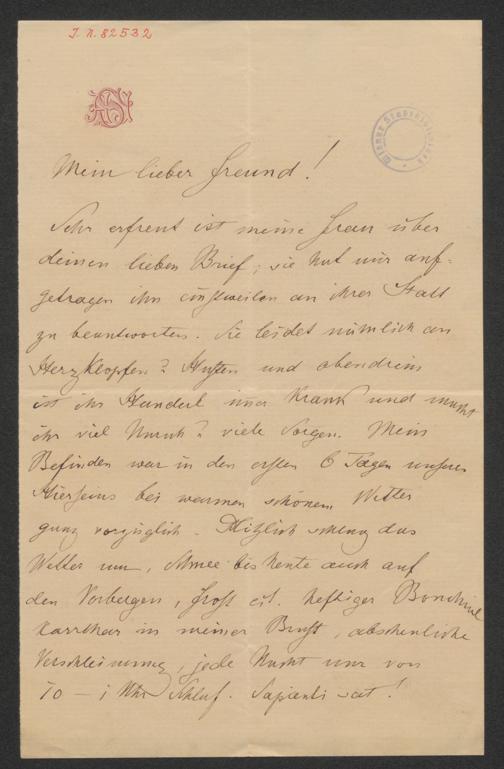 J. N. 82532
Mein lieber Freund!
Sehr erfreut ist meine Frau über
deinen lieben Brief; sie hat mir auf-
getragen ihn einstweilen an ihrer Statt
zu beantworten. Sie leidet nämlich an
Herzklopfen? Husten und obendrein
ist ihr Hunderl immer krank und macht
ihr viel Unruh? viele Sorgen. Mein
Befinden war in den ersten 6 Tagen unseres
Hierseins bei warmen schönem Wetter
ganz vorzüglich. Plötzlich schlug das
Wetter um, Schnee bis heute auch auf
den Vorbergen, Frost ect. heftiger Bronchial
Karrthar in meiner Brust, abscheuliche
Verschleimung, jede Nacht nur von
10 – 1 Uhr Schlaf. Sapienti sat!